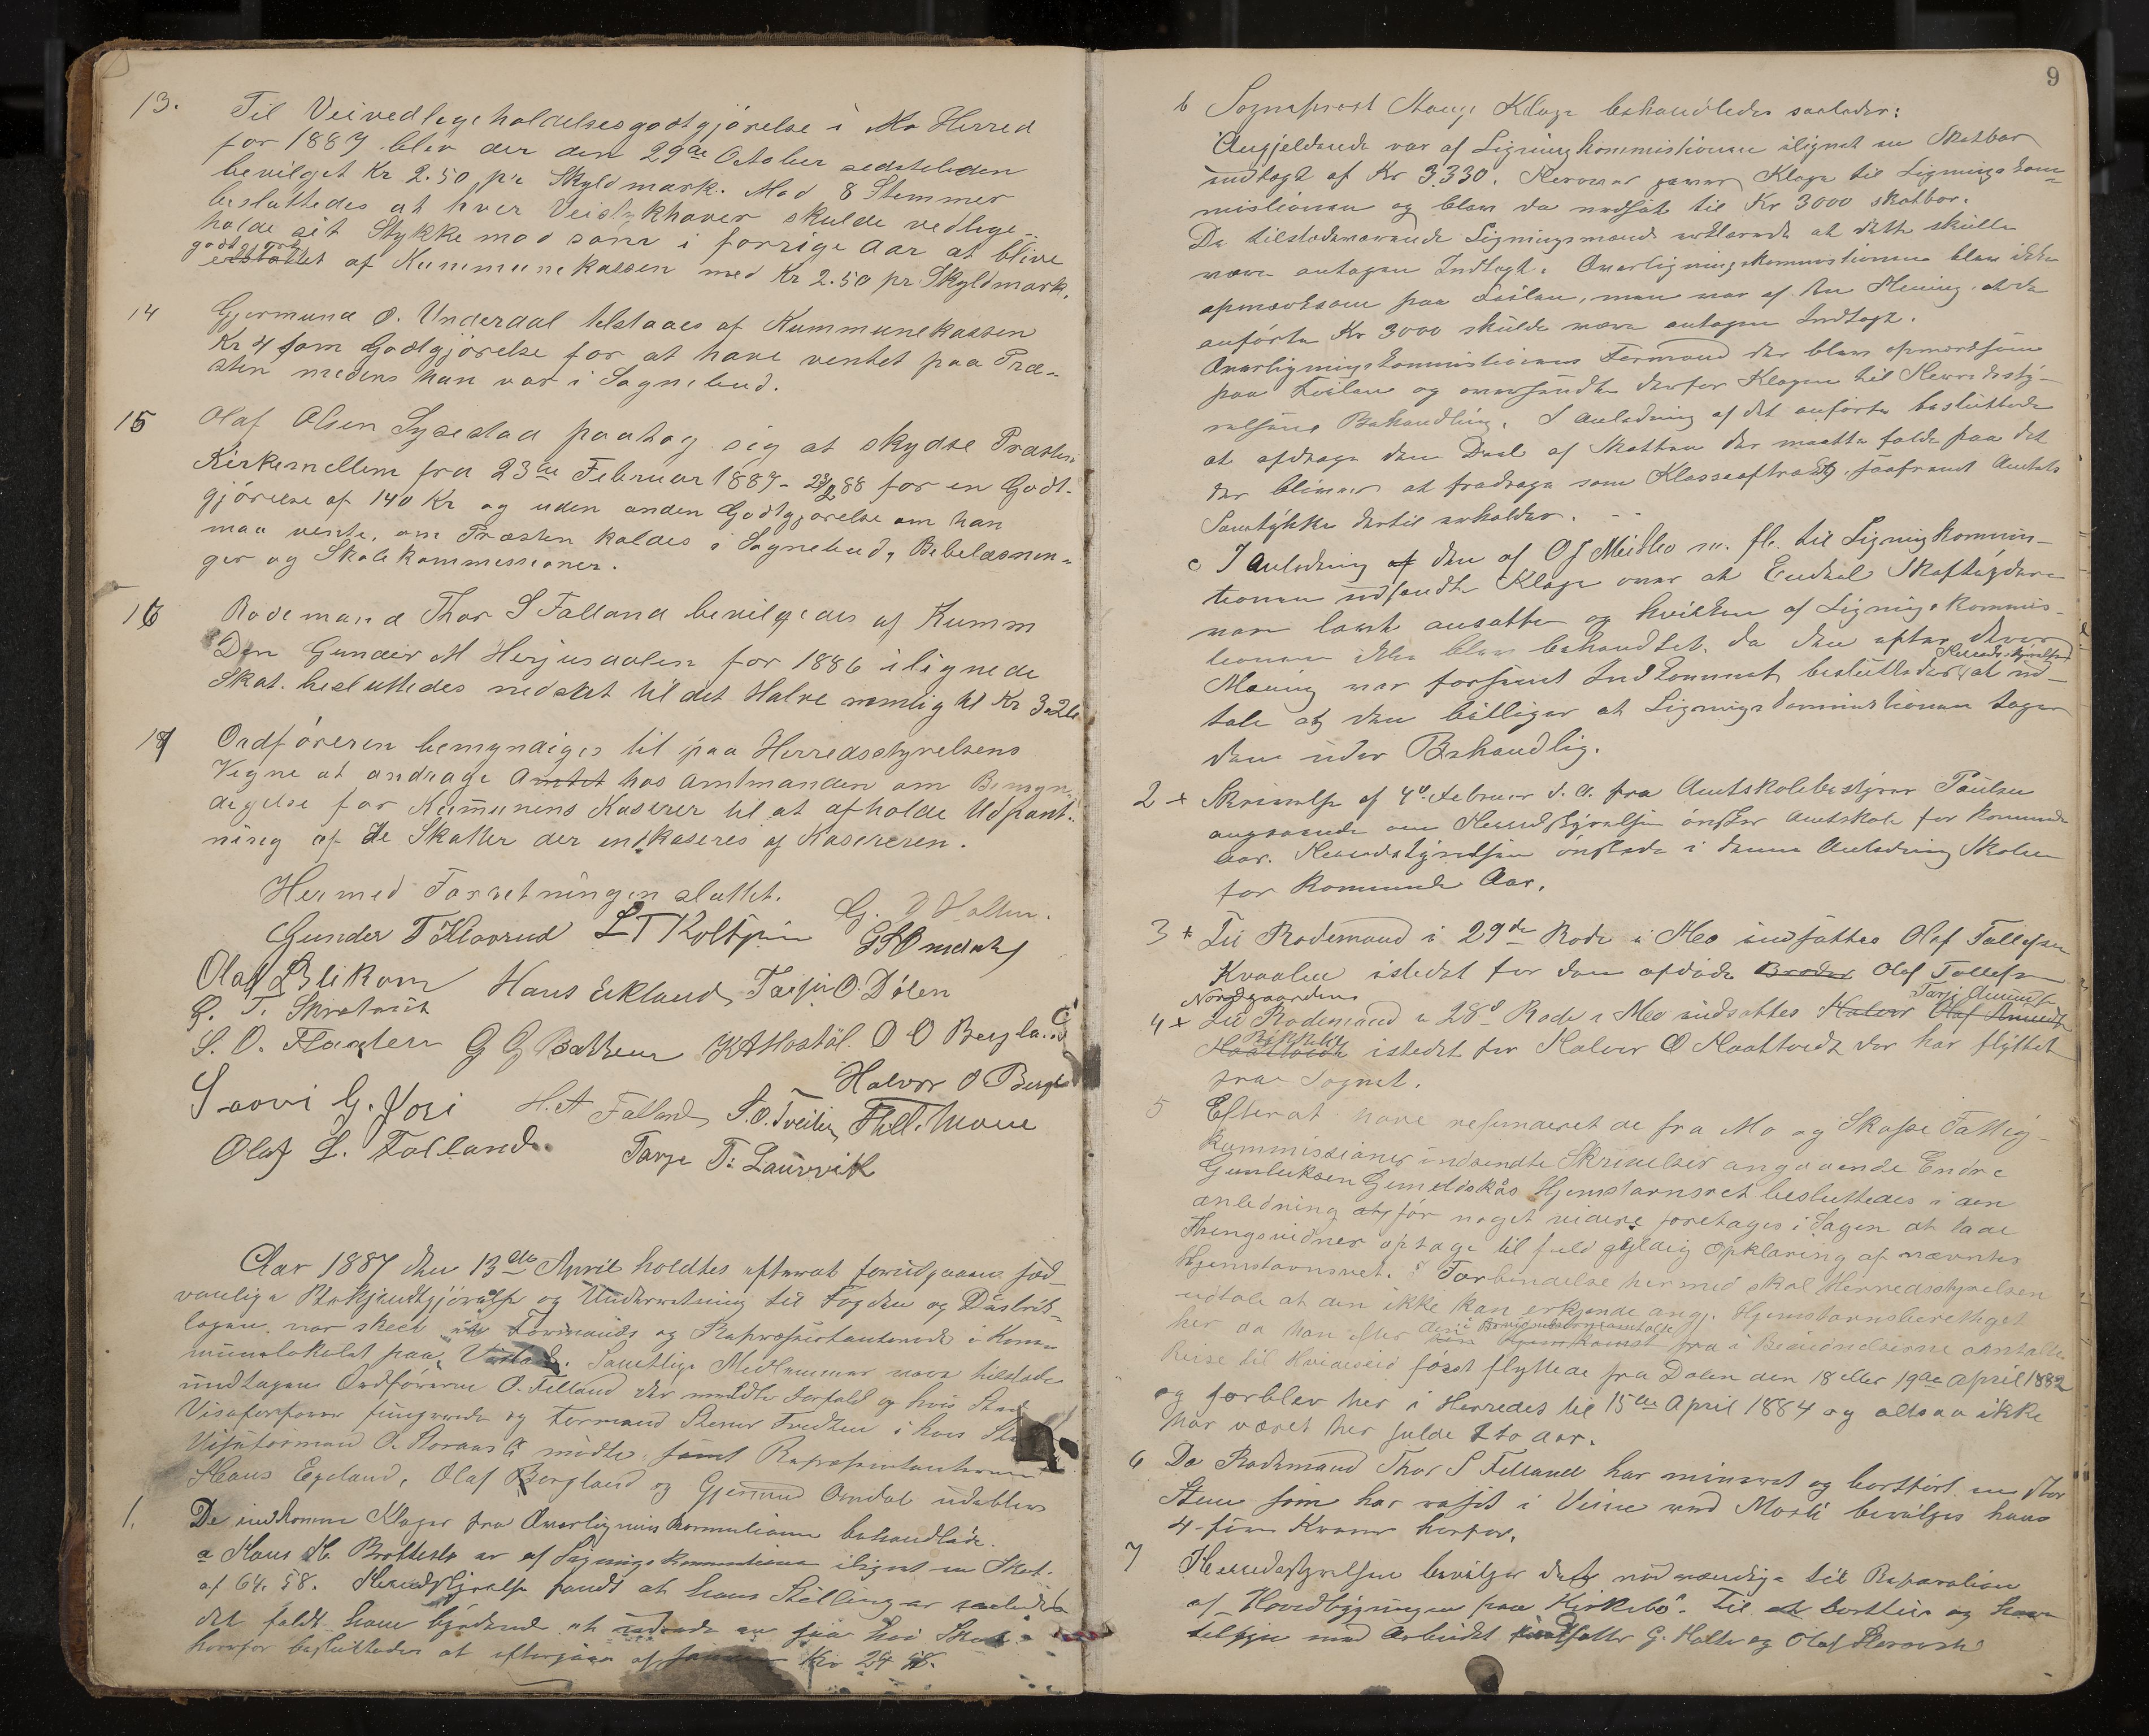 13. Til Veivedligeholdelsesgodtgjörelse i Mo Herred
for 1887 blev der den 29de October sidstleden
bevilget Kr 2.50 pr Skyldmark. Mod 8 Stemmer
besluttedes at hver Veistykhaver skulde vedlige-
holde sit Stykke mod som i forrige Aar at blive
godtgjort
erstattet af Kummunekassen med Kr 2.50 pr. Skyldmark.
14 Gjermund O. Underdal tilstaaes af Kummunekassen
Kr 4 som Godtgjörelse for at have ventet paa Præ-
sten medens han var i Sognebud.
15 Olaf Olsen Sysestad paatog sig at skydse Præsten
Kirkemellem fra 23de Februar 1887 - 23/2 88 for en Godt-
gjörelse af 140 Kr og uden anden Godtgjörelse om han
maa vente, om Præsten kaldes i Sognebud, Bibelæsnin-
ger og Skolekommissioner.
16 Rodemand Thor S Falland bevilgedes af Kumm
Den Gunder M Herjusdalen for 1886 ilignede
Skat. besluttedes nedsat til det Halve nemlig til Kr 3.26
17 Ordföreren bemyndiges til paa Herredsstyrelsens
Vegne at andrage Amtet hos Amtmanden om Bemyn-
digelse for Kummunens Kaserer til at afholde Udpant-
ning af de Skatter der inkaseres af Kasereren.
Hermed Forretningen sluttet.
G. D Holten.
Gunder T Klovrud LT Roltjin
Olaf Blikom Hans Eekland Tarjei O. Dölen
G. T. Skrotvit
S. O. Flagten G G Bakken KA Mostöl O O Bergland
Halvor O Bergl
Saavi G. Josi H. A Falland S. O. Tveiten
Olaf L. Falland Tarje T. Laurvik
Aar 1887 den 13de April holdtes efterat forudgaaende sæd-
vanlige Bekjendtgjörelse og Underretning til Fogden og Distrikts-
lægen var skeet Formands og Repræsentantmöde i Kom-
munelokalet paa Samtlige Medlemmer vare tilstede
undtagen Ordföreren O. Felland der meldte Forfald og hvis
Viseordförer fungerede og Formand Stener Tredten i hvis
Viseformand O. Storaasli mödte samt Repræsentanterne
Hans Egeland, Olaf Bergland og Gjermund Omdal udebleve
1. De indkomne Klager fra Overligningskommissionen behandlede.
a Hans H. Brottestö er af Ligningskommissionen ilignet en Skat
af 64.58. Herredstyrelsen fandt at hans Stilling er saaledes
det faldt ham byrdend at udrede en saa höi Skat
hvorfor besluttedes at eftergive af samme Kr 24 58.
9
b Sogneprest Hauges Klage behandledes saaledes:
Angjeldende var af Ligningskommissionen ilignet en Skatbar
indtægt af Kr 3330. Herover Klage til Ligningskom-
missionen og blev da nedsat til Kr 3000 skatbar.
De tilstedeværende Ligningsmænd erklærede at dette skulle
være antagen Indtægt. Overligningskommissionen blev ikke
opmærksom paa Feilen, men var af den Mening at de
anförte Kr 3000 skulde være antagen Indtægt.
Overligningskommissionens Formand der blev opmærksom
paa Feilen og oversendte derfor Klagen til Herredssty-
relsens Behandling. I Anledning af det anförte besluttede
at afdrage den Deel af Skatten der maatte falde paa det
der bliver at fradrage som Klassefradrag saafremt Amtets
Samtykke dertil erholdes.
c I Anledning af den af O J Midbö m. fl. til Ligningskommis-
tionen indsendte Klage over at Endeel Skatteydere
vare lavt ansatte og hvilken af Ligningskommis-
tionen ikke blev behandlet, da den efter deres
Herredsstyrelsen
Mening var forsent Indkommet besluttedes at ud-
tale at den billiger at Ligningskommissionen tager
den under Behandlig.
2 + Skrivelse af 4de Februar d. A. fra Amtskolebestyrer Paulsen
angaaende om Herredstyrelsen önsker Amtskole for kommende
Aar. Herredstyrelsen önskede i denne Anledning Skolen
for kommende Aar.
3 + Til Rodemand i 29de Rode i Mo indsattes Olaf Tallefsen
Kvaalen istedet for den afdöde Broder Olaf Tollefsen
Nordgaarden
Tarje Aamund
4 + Til Rodemand i 28de Rode i Mo indsattes Halvor Olaf Amund
istedet for Halvor O Haatvedt der har flyttet
fra Sognet.
5 Efterat have refereret de fra Mo og Skafse Fattig-
kummissioner indsendte Skrivelser angaaende Endre
Gunleiksen Gimeldskaas Hjemstavnsret besluttedes i den
anledning at för noget videre foretages i Sagen at lade
Thingsvidner optage til fuld gyldig Opklaring af nævntes
Hjemstavnsret. I Forbindelse hermed skal Herredsstyrelsen
udtale at den ikke kan erkjende angj. Hjemstavnsberettiget
her da han efter den i Beviidnelserne omtalte
Reise til Hvideseid först flyttede fra Dalen den 18 eller 19de April 1882
og forblev her i Herredet til 15de April 1884 og altsaa ikke
har været her fulde 2 to Aar.
6 Da Rodemand Thor S Felland har mineret og bortfört en stor
Steen som har raset i Veien ved Mosli bevilges ham
4 - fire Kroner herfor.
7 Herredsstyrelsen bevilger det nödvendige til Reparation
af Hovedbygningen paa Kirkebö. Til at bortleie og have
tilsyn med Arbeidet indsattes G. Holte og Olaf Storaasli